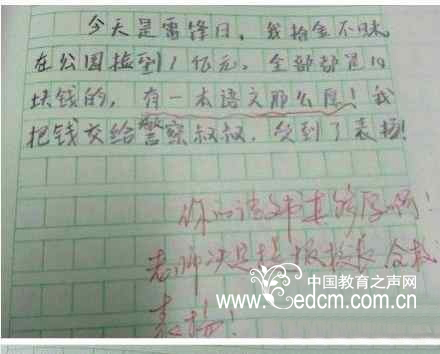 今天是雷锋日，我拾金不昧，
在公园捡到1亿元，全部都是10
块钱的，有一本语文那么厚！我
把钱交给警察叔叔，受到了表扬！
你的语文书真够厚啊！
老师决定提报校长 全校
表扬！
中国教育之声网
www.edcm.com.cn